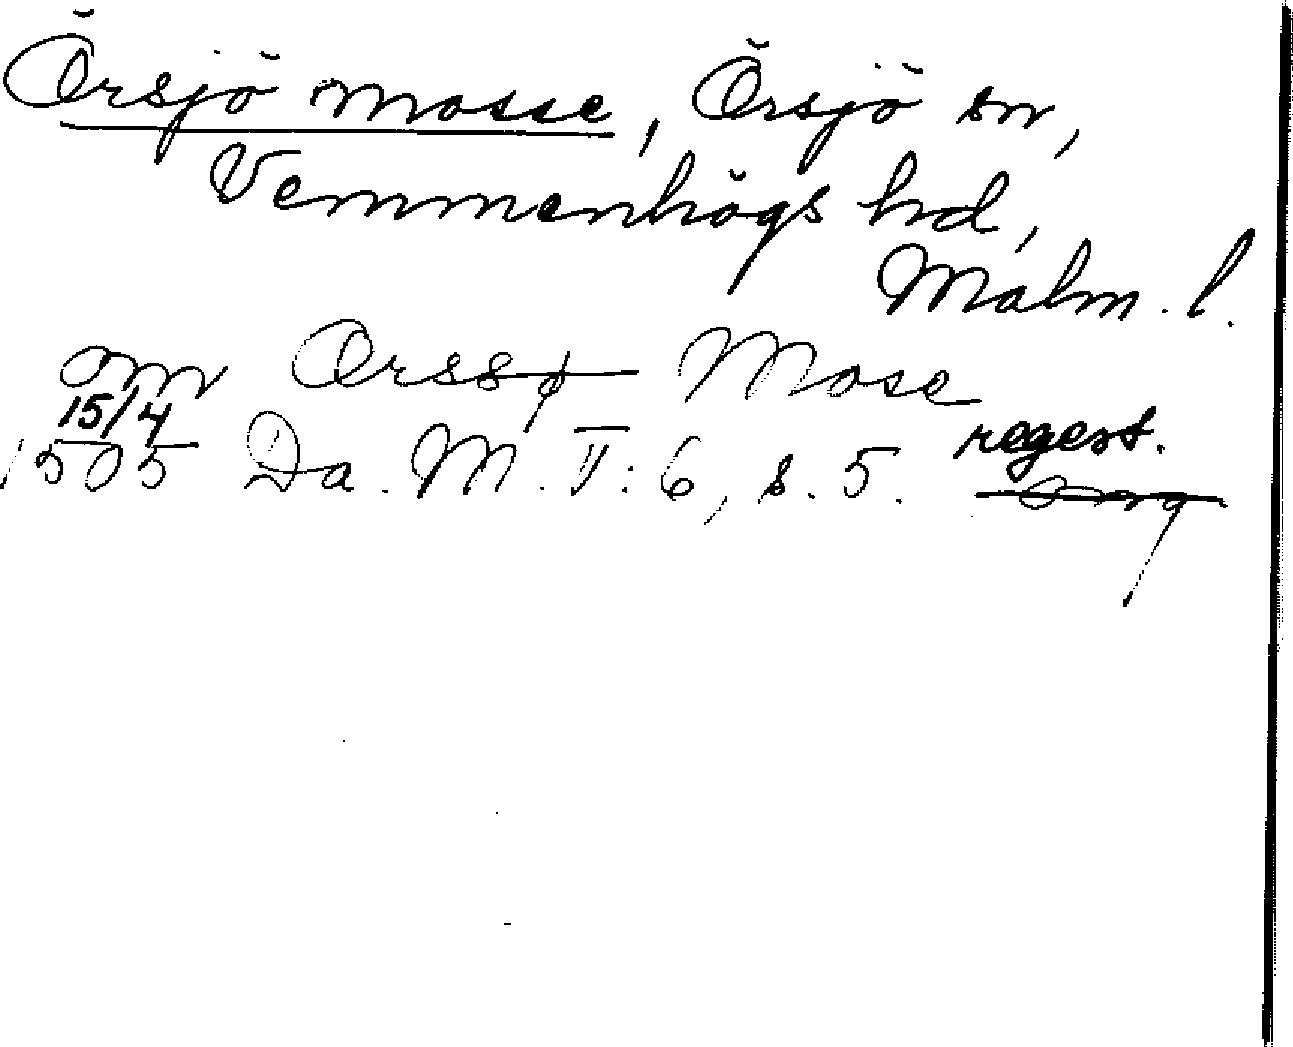 Örsjö mosse, Örsjö sn,
Vemmenhögs hd,
Malm. l.
om Orssø Mose
15/4
1505 Da. M. II:6, s. 5. regest.